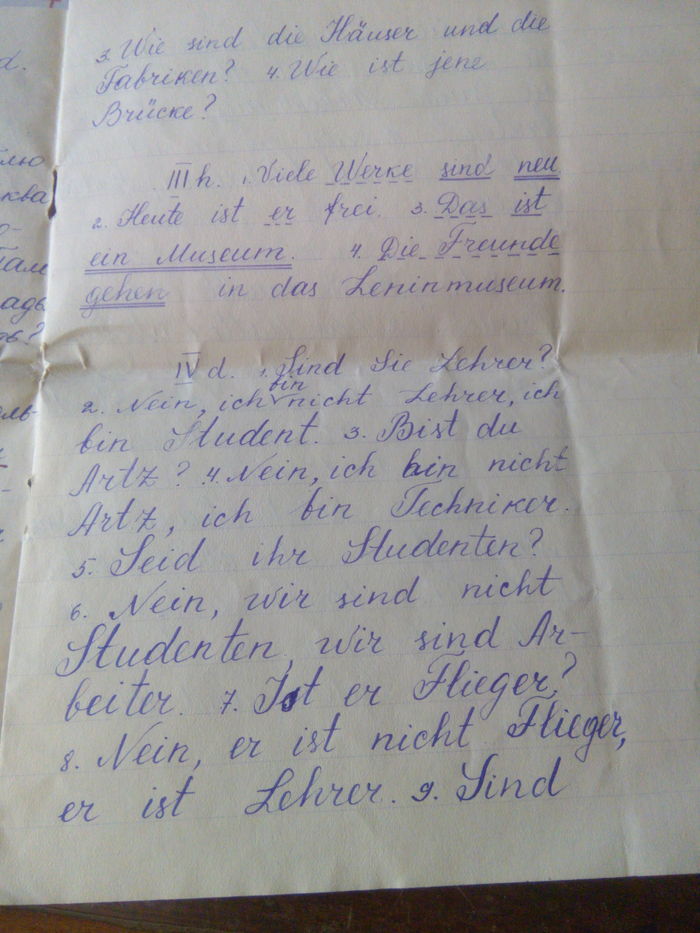 3. Wie sind die Häuser und die
Fabriken? 4. Wie ist jene
Brücke?
III h. 1. Viele Werke sind neu
2. Heute ist er frei. 3. Das ist
ein Museum. 4. Die Freunde
gehen in das Leninmuseum.
IV d. 1. Sind Sie Lehrer?
2. Nein, ich bin nicht Lehrer, ich
bin Student. 3. Bist du
Artz? 4. Nein, ich bin nicht
Artz, ich bin Techniker.
5. Seid ihr Studenten?
6. Nein, wir sind nicht
Studenten, wir sind Ar-
beiter. 7. Ist er Flieger?
8. Nein, er ist nicht Flieger,
er ist Lehrer. 9. Sind